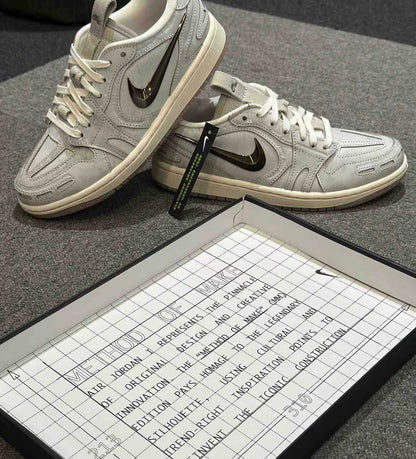 METHOD OF MAKE
AIR JORDAN I REPRESENTS THE PINNACLE
OF ORIGINAL DESIGN AND CREATIVE
INNOVATION THE "METHOD OF MAKE" (MM)
EDITION PAYS HOMAGE TO THE LEGENDARY
SILHOUETTE, USING CULTURAL AND
TREND-RIGHT INSPIRATION POINTS TO
INVENT THE ICONIC CONSTRUCTION
213
310